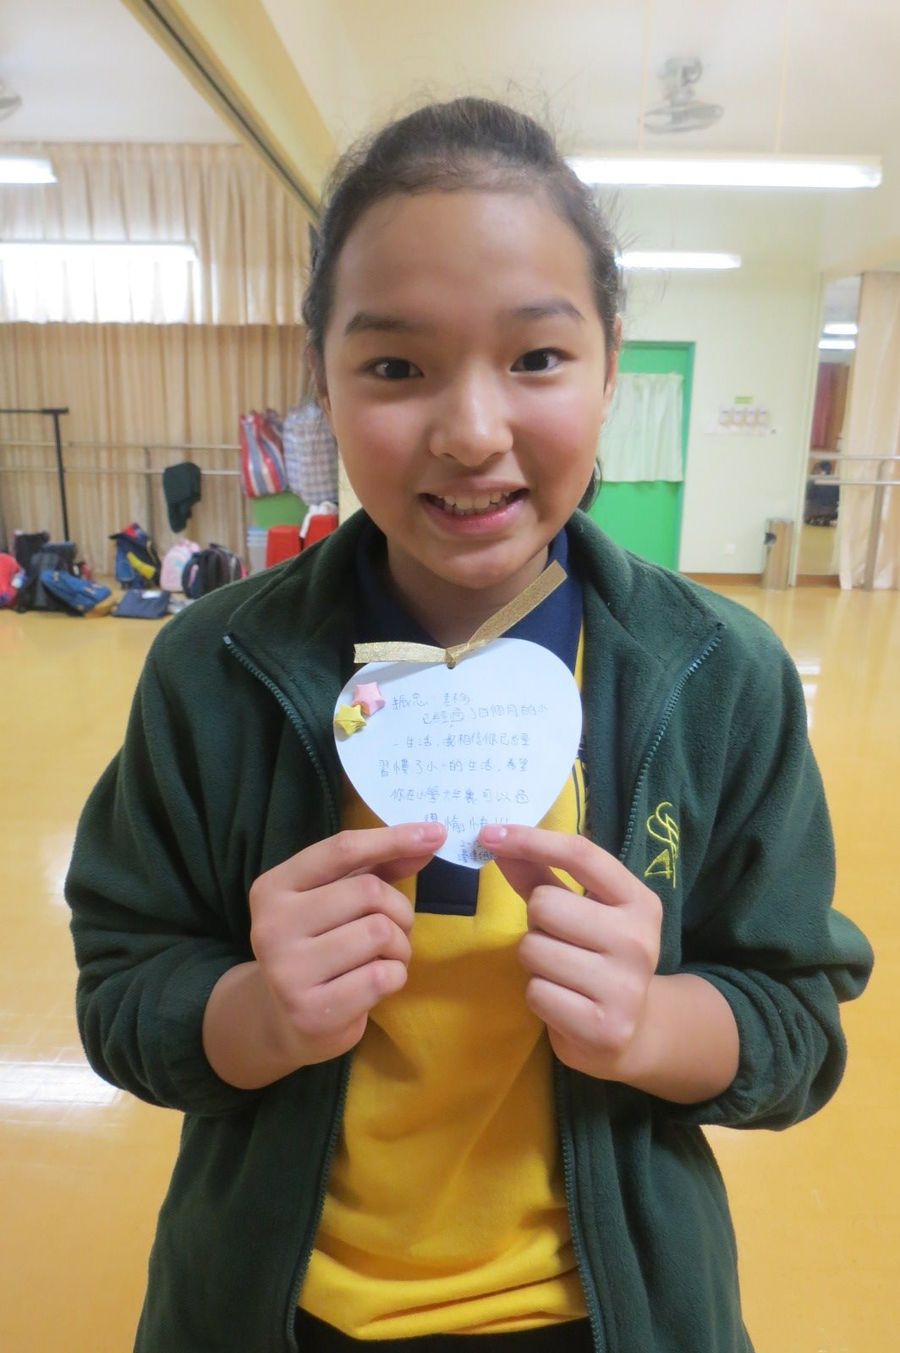 已經過了四個月的小
一生活，我相信你已經
習慣了小一的生活，希望
你在小學六年裏可以過
得愉快!!!